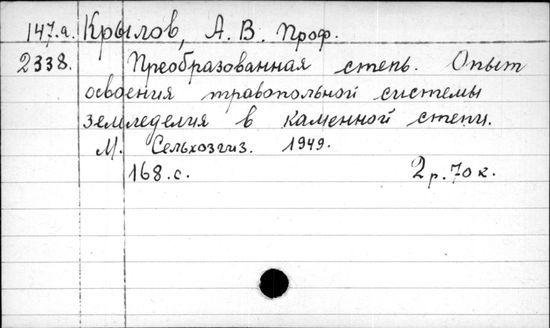 147.а. Крылов, А. В. Проф.
2338. Преобразованная степь. Опыт
освоения травопольной системы
земледелия в каменной степи.
М. Сельхозгиз. 1949.
168.с. 2 р. 70 к.